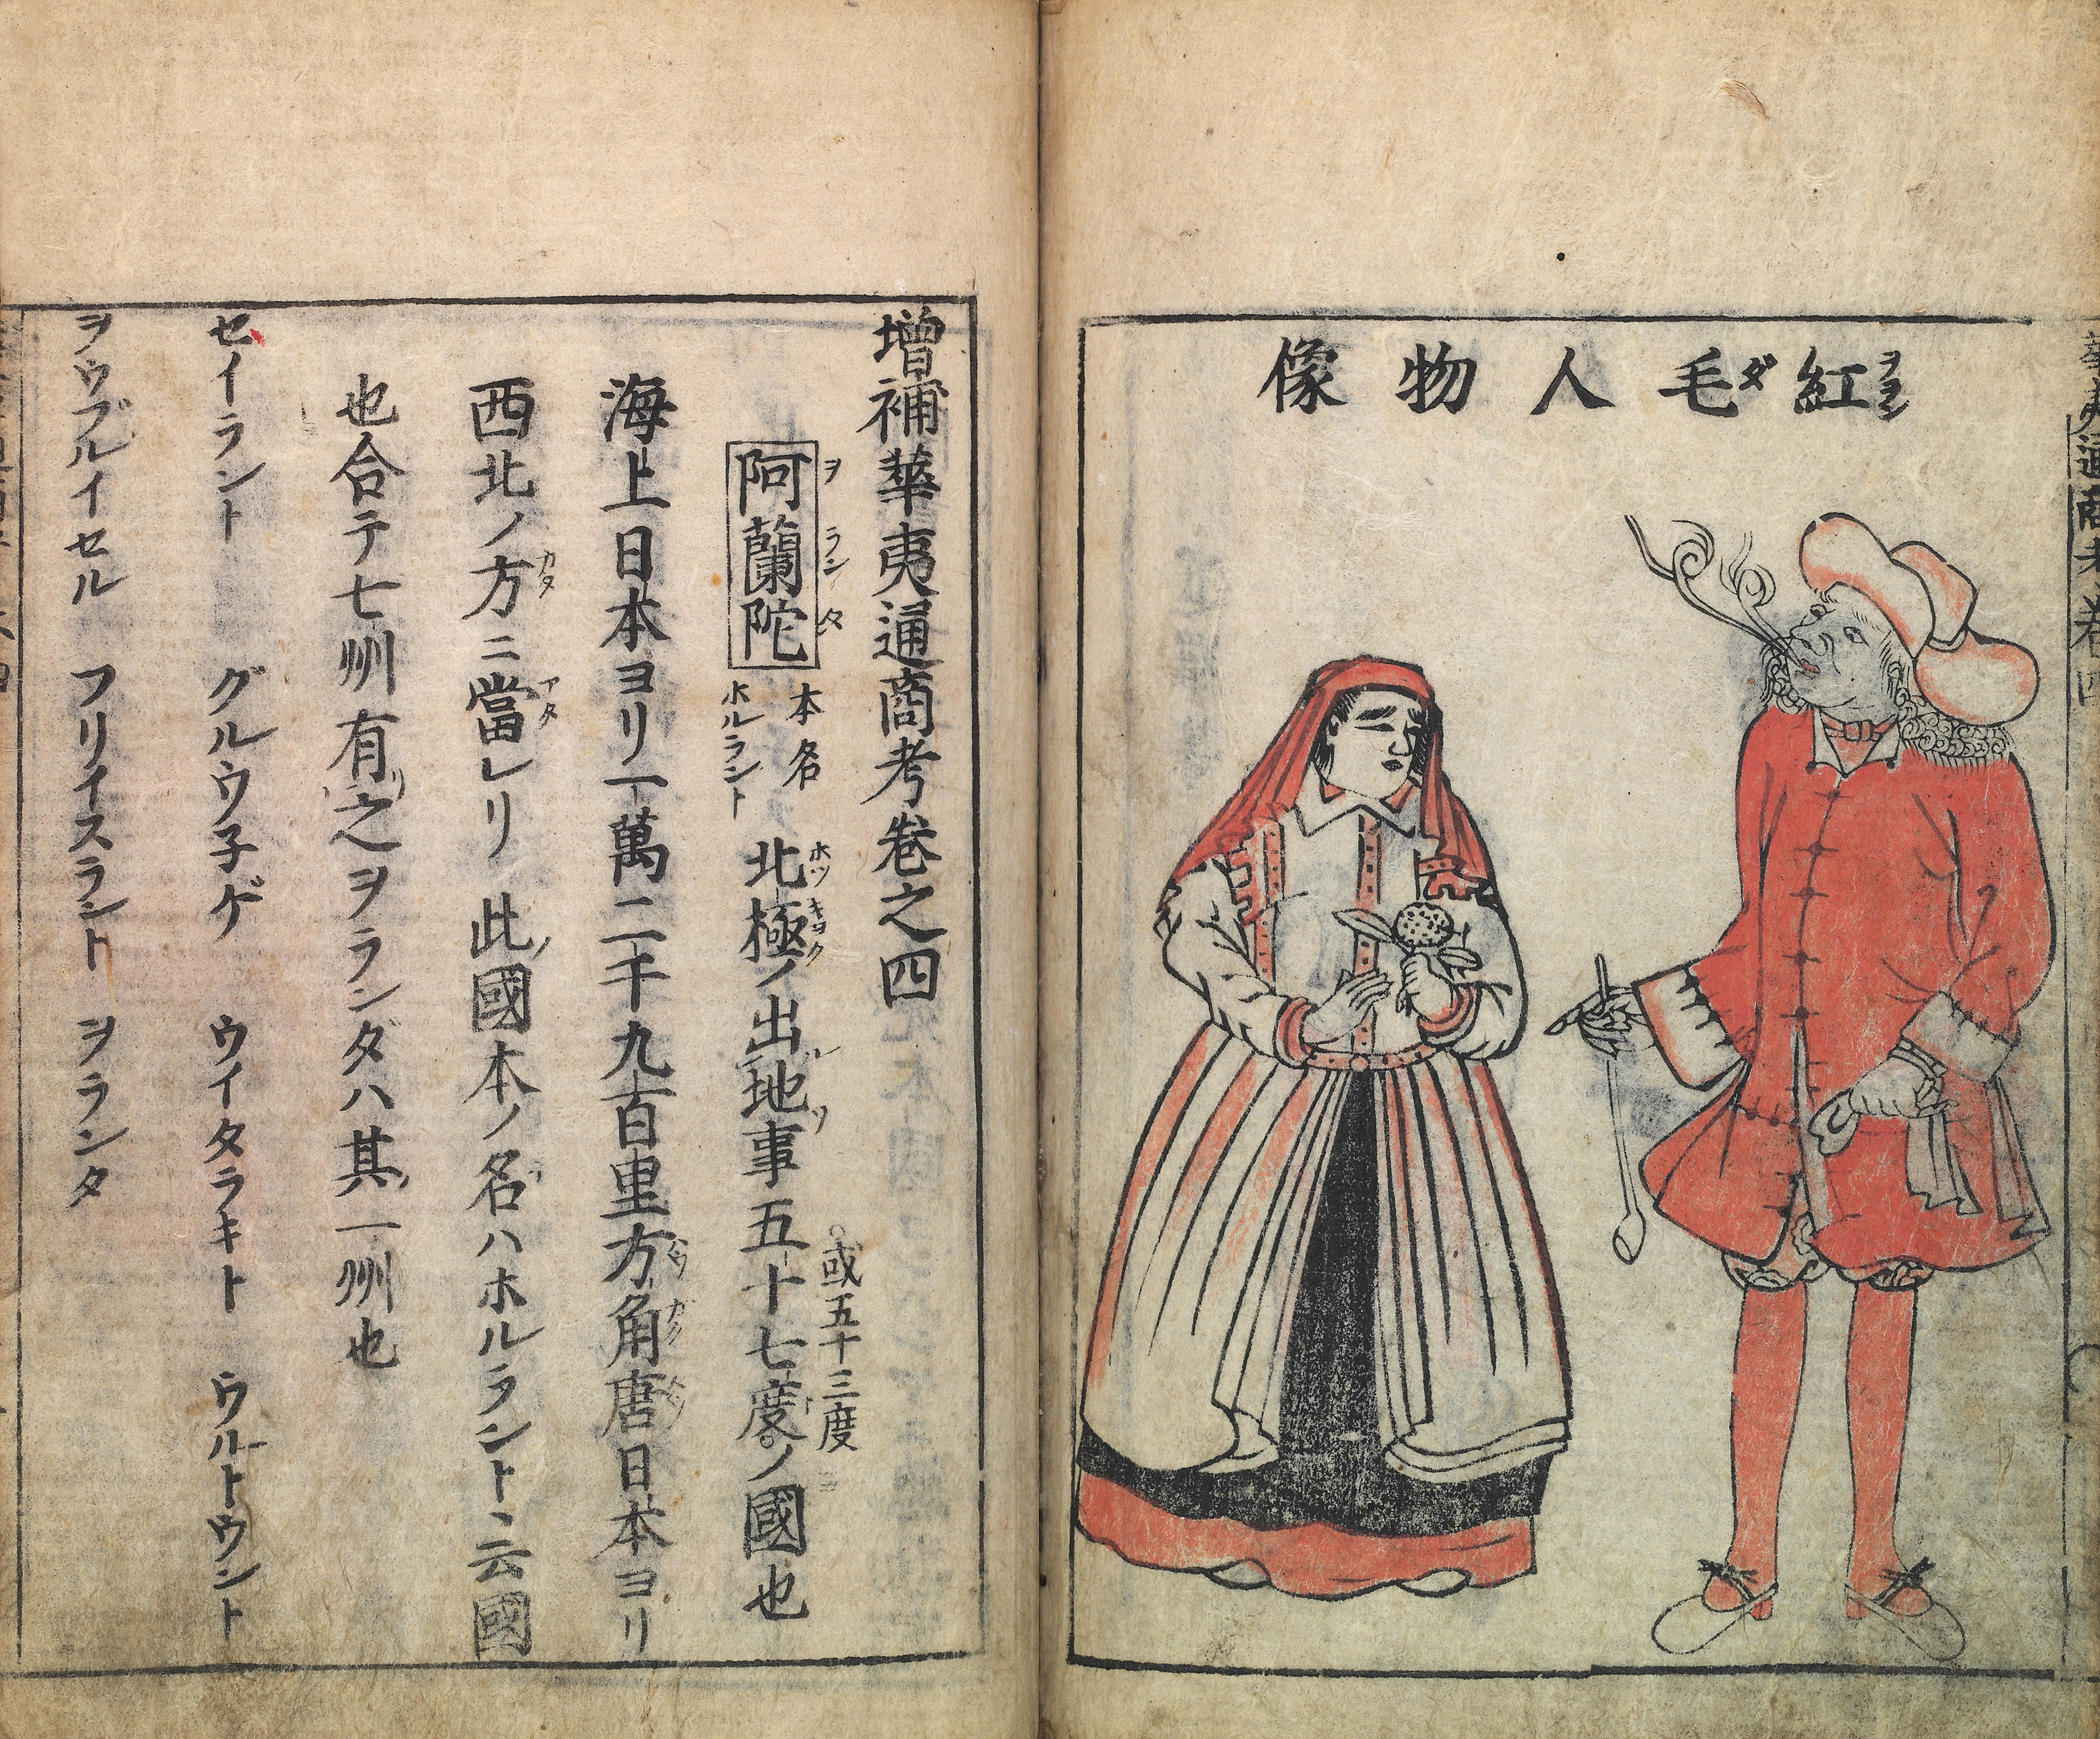 紅毛人物像
ヲランダ
増補華夷通商考巻之四
阿蘭陀 本名ホルラント 北極ノ出地事五十七度ノ國也
ヲランタ
ホツキヨク
或五十三度
海上日本ヨリ一萬二千九百里方角唐日本ヨリ
西北ノ方ニ當レリ 此國本ノ名ハホルラントヽ云國
カタ
アタ
也合テ七州有之ヲランダハ其一州也
セイラント グルウ子ゲ ウイタラキト ウルトウント
ヲウブルイセル フリイスラント ヲランタ